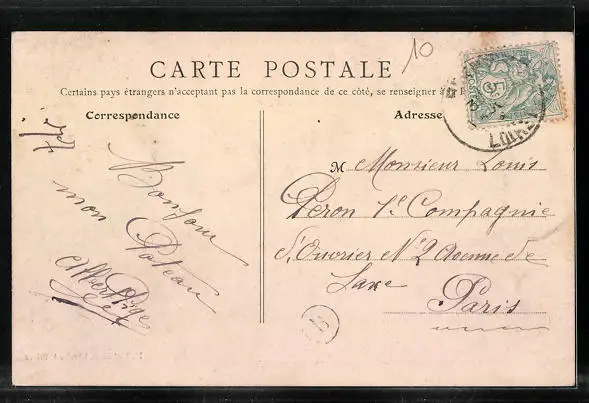 10
CARTE POSTALE
Certains pays étrangers n'acceptant pas la correspondance de ce côté, se renseigner à la
Correspondance
Adresse
Bonjour
mon
Poteau
Albert
M Monsieur Louis
Peron 1e Compagnie
d'Ouvrier N° 2 Avenue de
Saxe
Paris